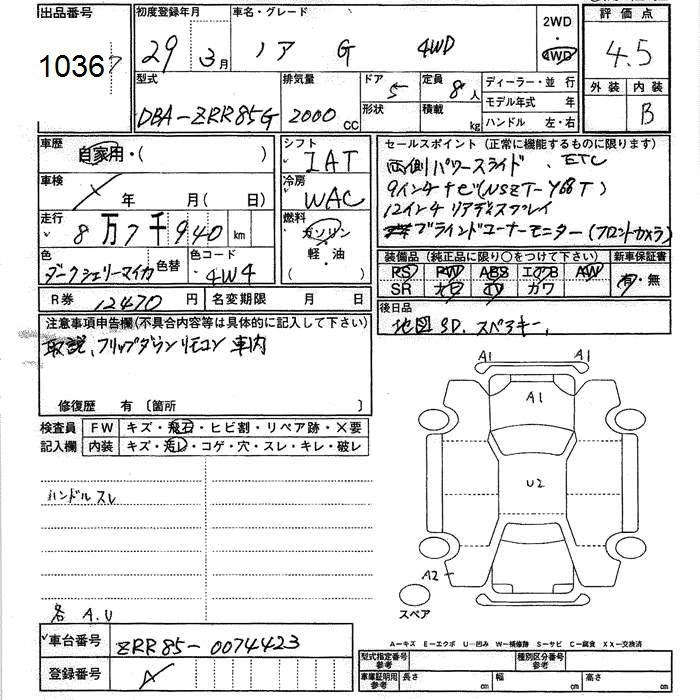 出品番号
1036
初度登録年月
29年 3月
車名・グレード
ノア G 4WD
2WD
4WD
評価点
4.5
外装 内装
B
型式
DBA-ZRR85G
排気量
2000 CC
ドア
5
形状
定員
8人
積載
kg
ディーラー・並行
モデル年式 年
ハンドル 左・右
車歴
自家用・( )
車検
年 月( 日)
走行
8万7千940 km
色
ダークシェリーマイカ
色替
色コード
4W4
シフト
IAT
冷房
WAC
燃料
ガソリン
軽・油
( )
セールスポイント (正常に機能するものに限ります)
両側パワースライド、ETC
9インチナビ(NSZT-Y68T)
12インチ リアディスプレイ
ブラインドコーナーモニター(フロントカメラ)
装備品 (純正品に限り○をつけて下さい)
新車保証書
PS PW ABS エアB AW
SR ナビ TV カワ
有・無
後日品
地図SD、スペアキー、
R券 12470 円
名変期限 月 日
注意事項申告欄(不具合内容等は具体的に記入して下さい)
取説、フリップダウンリモコン 車内
修復歴 有 〔箇所 〕
検査員
記入欄
FW キズ・飛石・ヒビ割・リペア跡・×要
内装 キズ・汚レ・コゲ・穴・スレ・キレ・破レ
ハンドルスレ
各 A.U
A1 A1
A1
U2
A2
スペア
A-キズ E-エクボ U-凹み W-補修跡 S-サビ C-腐食 XX-交換済
車台番号
ZRR85-0074423
登録番号
型式指定番号
参考
種別区分番号
参考
車庫証明用
参考
長さ cm
幅 cm
高さ cm